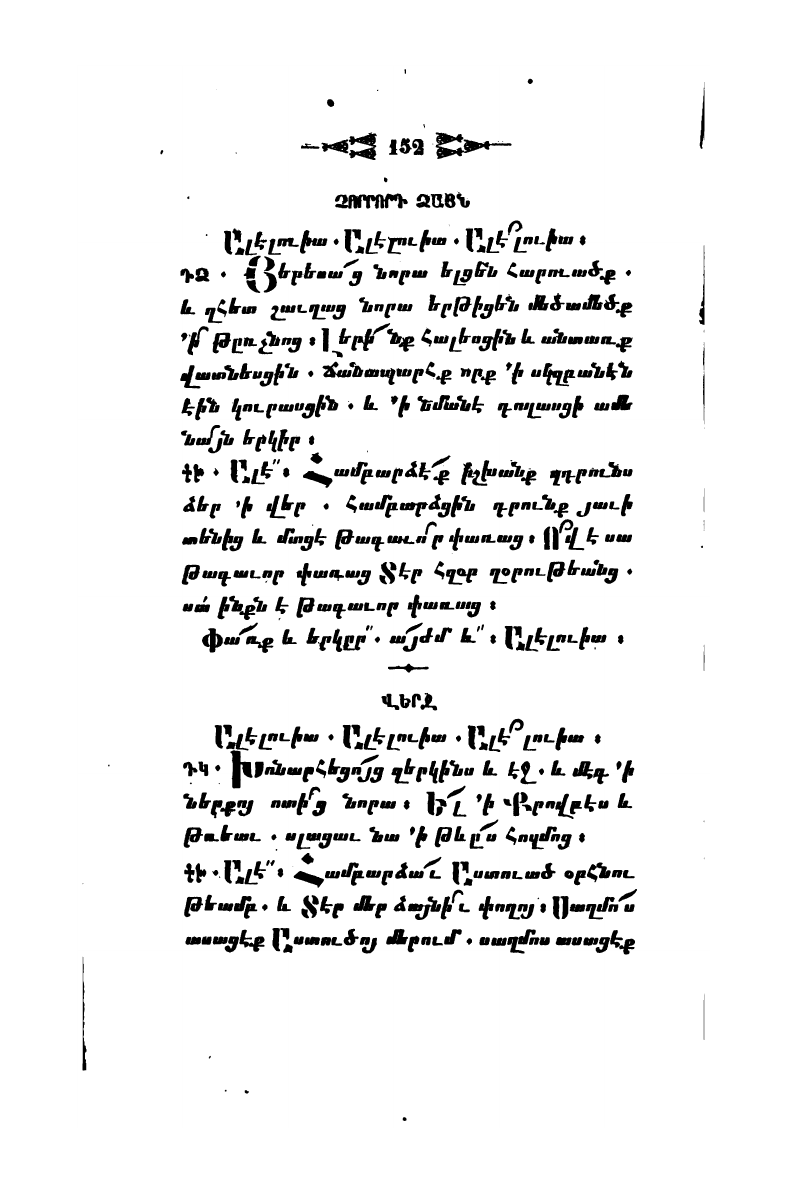 152
ՉՈՐՐՈՐԴ ՁԱՅՆ
Ալէլուիա ․ Ալէլուիա ․ Ալէ՟լուիա ։
ԴՁ ․ Յերեսա՜ց նորա ելցեն հարուածք ․
և զհետ շաւղաց նորա երթիցեն մեծամեծք
՚ի՟ թըռչնոց ։ Լերի՜նք հալեսցին և անտառք
վատնեսցին ․ ճանապարհք որք ՚ի սկզբանէն
էին կուրասցին ․ և ՚ի նմանէ դողասցի ամե
նա՟յն երկիր ։
ՓԽ ․ Ալէ՞ ։ Համբարձէ՜ք իշխանք զդրունս
ձեր ՚ի վեր ․ համբարձցին դրունք յաւի
տենից և մտցէ թագաւո՟ր փառաց ։ Ո՟վ է սա
թագաւոր փառաց Տէր հզօր զօրութեանց ․
սա՛ ինքն է թագաւոր փառաց ։
Փա՜ռք և երկըր՞ ․ ա՜յժմ և՞ ։ Ալէլուիա ։
ՎԵՐՋ
Ալէլուիա ․ Ալէլուիա ․ Ալէ՟լուիա ։
ԴԿ ․ Խոնարհեցո՜յց զերկինս և էջ ․ և մէգ ՚ի
ներքոյ ոտի՟ց նորա ։ Ե՜լ ՚ի Քրովբէս և
թռեաւ ․ սլացաւ նա ՚ի թևը՜ս հողմոց ։
ՓԽ ․ Ալէ՞ ։ Համբարձա՜ւ Աստուած օրհնու
թեամբ ․ և Տէր մեր ձայնի՟ւ փողոյ ։ Սաղմո՜ս
ասացէք Աստուծոյ մերում ․ սաղմոս ասացէք